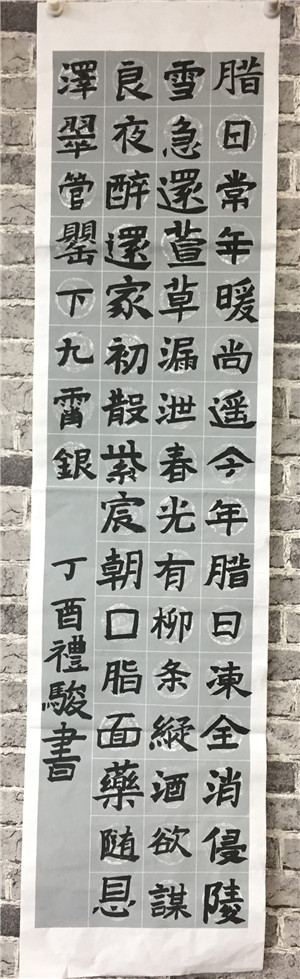 腊日常年暖尚遥今年腊日凍全消侵陵
雪急還萱草漏泄春光有柳条縱酒欲謀
良夜醉還家初散紫宸朝口脂面藥随恩
澤翠管罌下九霄銀
丁酉禮駿書